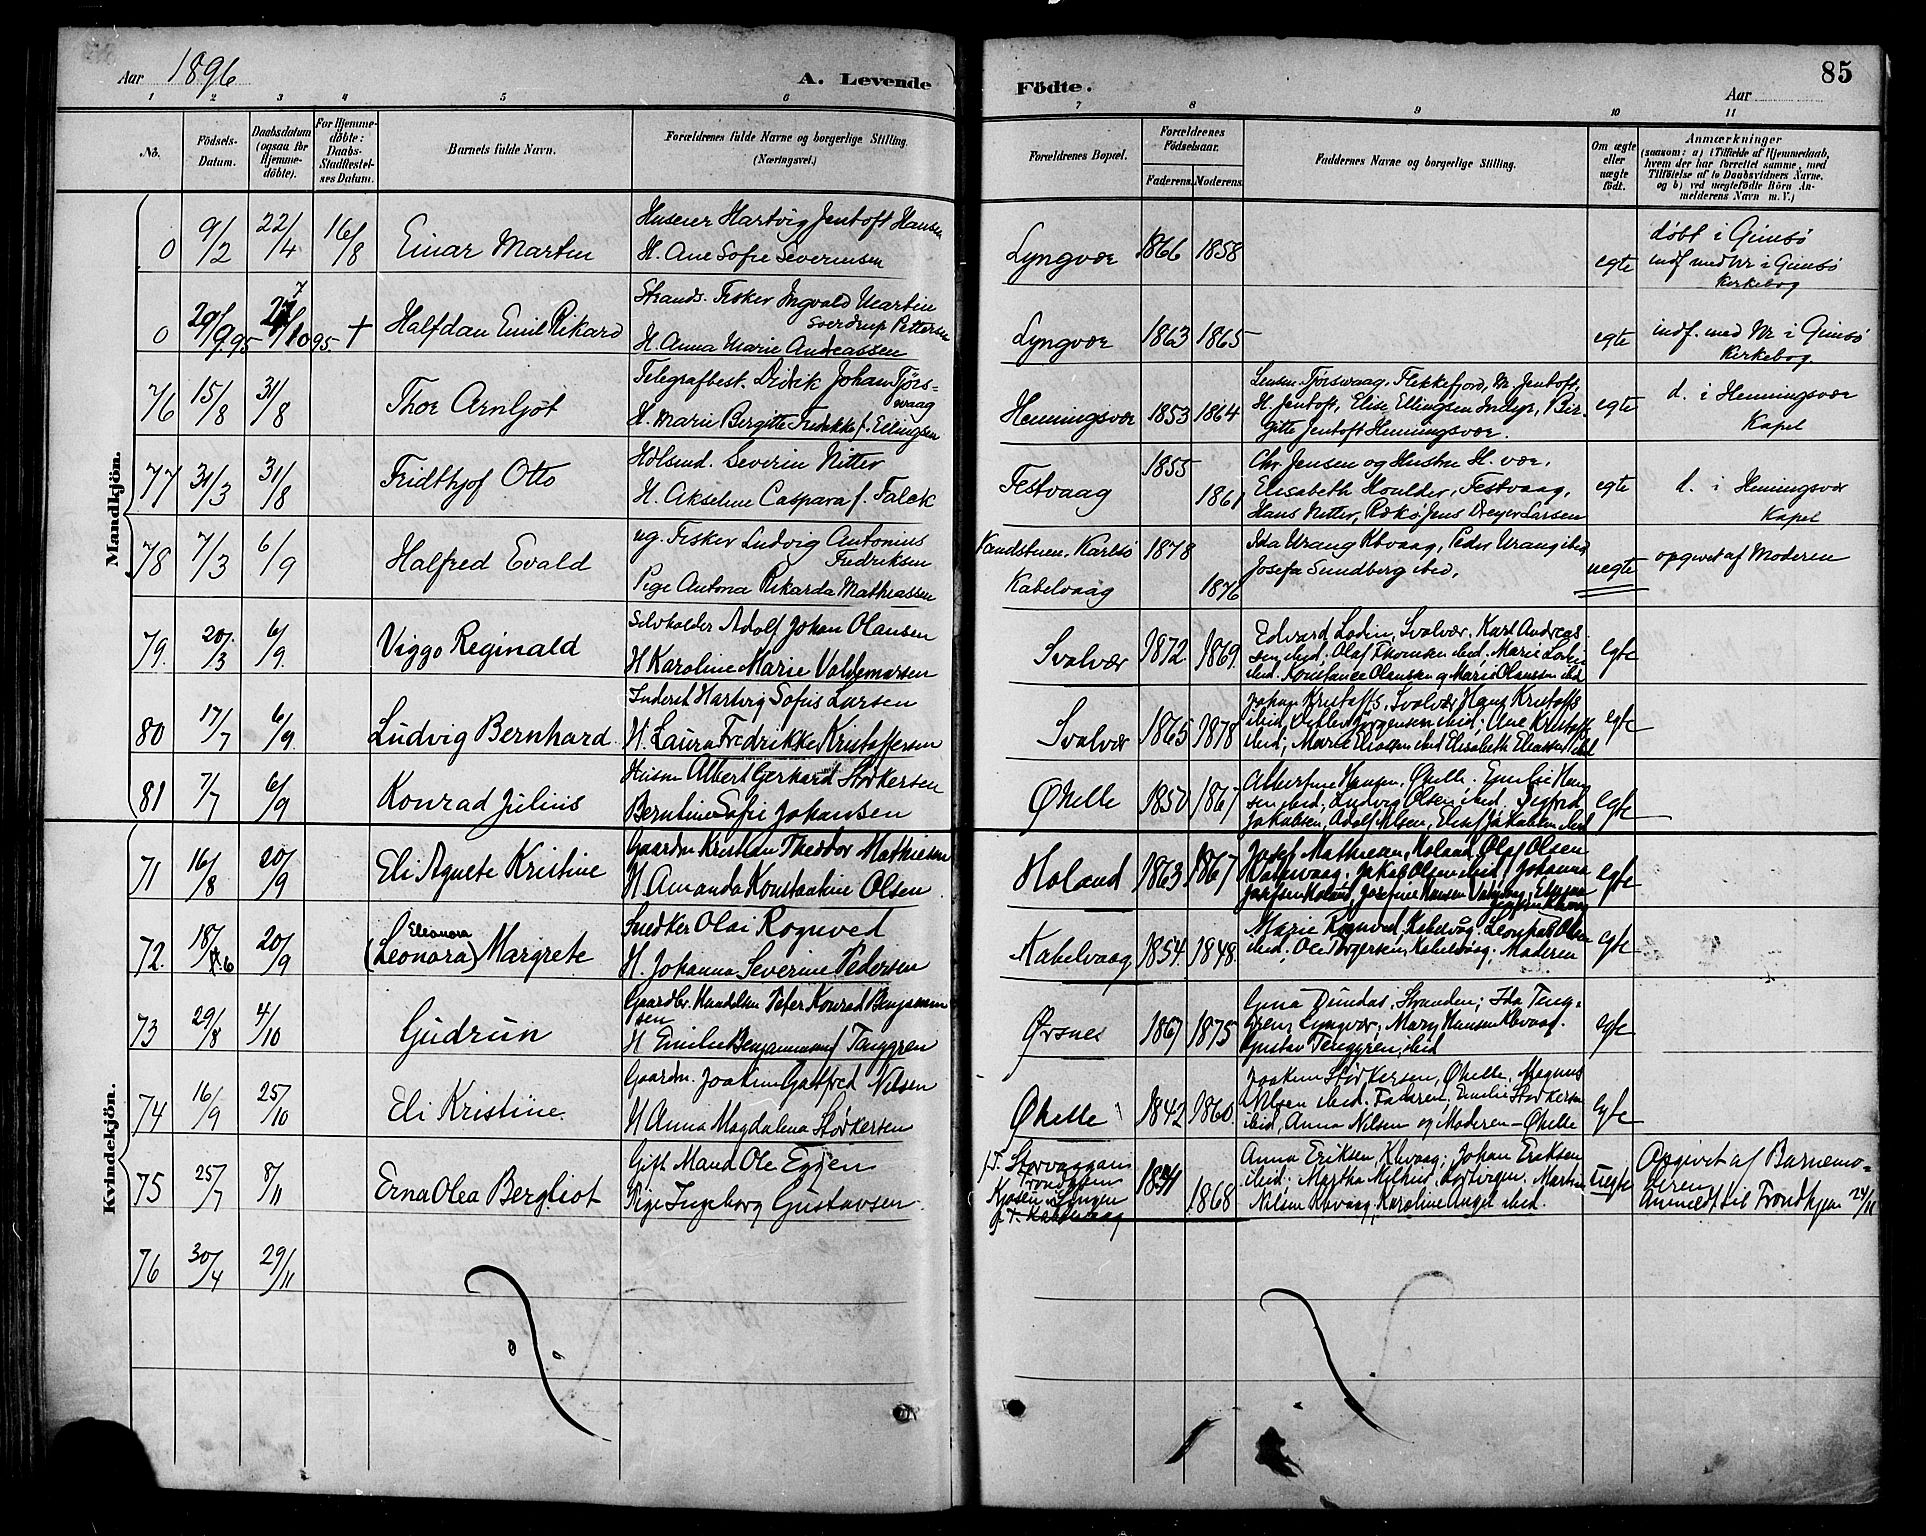 Aar 1896
A. Levende
Födte.
85
Aar
1 2 3 4 5 6 7 8 9 10 11
No.
Födsels-Datum.
Daabsdatum (ogsaa for Hjemme-döbte).
For Hjemme-döbte: Daabs-Stadfæstel-ses Datum.
Barnets fulde Navn.
Forældrenes fulde Navne og borgerlige Stilling.
(Næringsvei.)
Forældrenes Bopæl.
Forældrenes Födselsaar.
Faderens. Moderens.
Faddernes Navne og borgerlige Stilling.
Om ægte eller uægte födt.
Anmærkninger
(saasom: a) i Tilfælde af Hjemmedaab,
hvem der har forrettet samme, med
Tilföielse af to Daabsvidners Navne,
og b) ved uægtefödte Börn An-
melderens Navn m.V.)
Mandkjön.
0 9/2 22/4 16/8 Einar Martin
Huseier Hartvig Jentoft Hansen
H. Ane Sofie Severinsen
Lyngvær 1866 1858 egte
døbt i Gimsö
indf med Nr i Gimsö
Kirkebog
0 20/9 95 27/10 95. + Halfdan Emil Rikard
Strands. Fisker Ingvald Martin
Sverdrup Pettersen
H. Anna Marie Andreassen
Lyngvær 1863 1865 egte
indf. med Nr. i Gimsö
Kirkebog
76 15/8 31/8 Thor Arnljót
Telegrafbest. Didrik Johan Tjörs-
waag
H. Marie Birgitte Fredrikke f. Ellingsen
Henningsvær 1853 1864
Tjörswaag, Flekkefjord, M. Jentoft,
H. Jentoft, Elise Ellingsen Indyr, Bir-
gitte Jentoft Henningsvær.
egte
d. i Henningsvær
Kapel
77 31/3 31/8 Fridthjof Otto
Severin Nitter
H. Akseline Caspara f. Falck
Festvaag 1855 1861
Chr. Jensen og Hustru H. vær,
Elisabeth Houlder, Festvaag,
Hans Nitter, Jens Dreyer Larsen
egte
d. i Henningsvær
Kapel
78 7/3 6/9 Halfred Evald
ug. Fisker Ludvig Antonius
Fredriksen
Pige Antona Rikarda Mathiassen
Karlsö
Kabelvaag 1878 1876
Ida Wrang Kbvaag, Peder Wrang ibid
Josefa Sundberg ibid,
uegte
opgivet af Moderen
79. 20/3 6/9. Viggo Reginald
Selvholder Adolf Johan Olausen
H Karoline Marie Valdemarsen
Svolvær 1872. 1869.
Edvard Lodin, Svolvær. Karl Andreas-
sen ibid, Olaf Thomsen ibid. Marie Lodin
ibid. Konstance Olaussen og Marie Olaussen ibid
egte
80 17/7 6/9. Ludvig Bernhard
Inderst Hartvig Sofus Larsen
H. Laura Fredrikke Kristoffersen
Svolvær 1865 1878
Johan Kristoffs, Svolvær Hans Kristoffs
ibid, Jörgensen ibid; Ane Kristoff
ibid; Marie Eliassen ibid Elisabeth Eliassen ibid
egte
81 7/7 6/9 Konrad Julius
Husm Albert Gerhard Störkersen
Berntine Sofie Johansen
Øhelle 1850 1867
Albertine Hansen, Øhelle. Emilie Han-
sen ibid; Ludvig Olsen ibid. Sigfrid
Jakobsen, Adolf Nilsen, ibid
egte
Kvindekjön.
71 16/8 20/9 Eli Agnete Kristine
Gaardm Kristian Theodor Mathisen
H Amanda Konstantine Olsen
Holand 1863 1867
Josef Mathisen, Holand, Olaf Olsen
Jakob Olsen ibid, Johanna
Josefsen Holand, Josefine Hansen
egte
72. 18/6 20/9 (Leonora) Eleonora Margrete
Snedker Olai Rognved
H. Johanna Severine Pedersen
Kabelvaag 1854. 1848.
Marie Rognved, Kabelvåg, Leonhard Olsen
ibid, Ole Torgersen, Kabelvåag, Moderen
egte
73 29/8 4/10 Gudrun
Gaardbr. Handelsm Peter Konrad Benjamin-
sen
H Emilie Benjaminsen f Tenggren
Ørsnes 1867 1875
Dundas, Stranden; Ida Teng-
gren; Lyngvær; Mary Hansen Kbvaag.
Gustav Tenggren, ibid
egte
74 16/9 25/10 Eli Kristine
Gaardm. Joakim Gotfred Nilsen
H Anna Magdalena Störkersen
Øhelle 1842 1860.
Joakim Störkersen, Øhelle, Magnus
Nilsen ibid. Faderen, Emilie Störkersen
ibid, Anna Nilsen og Moderen – Øhelle
egte
75 25/7 8/11 Erna Olea Bergliot
Gift Mand Ole Eggen
Pige Ingeborg Gustavsen
f.T. Storvaagan
Trondhjem
Kjosen i Lyngen
p.T. Kabelvaag
1841 1868
Anna Eriksen Kbvaag; Johan Eriksen
ibid; Martha Martin
Nilsen Kbvaag; Karoline Angel ibid.
uegte
Opgivet af Barnemo-
deren
Anmeldt til Trondhjem 24/11
76 30/4 29/11